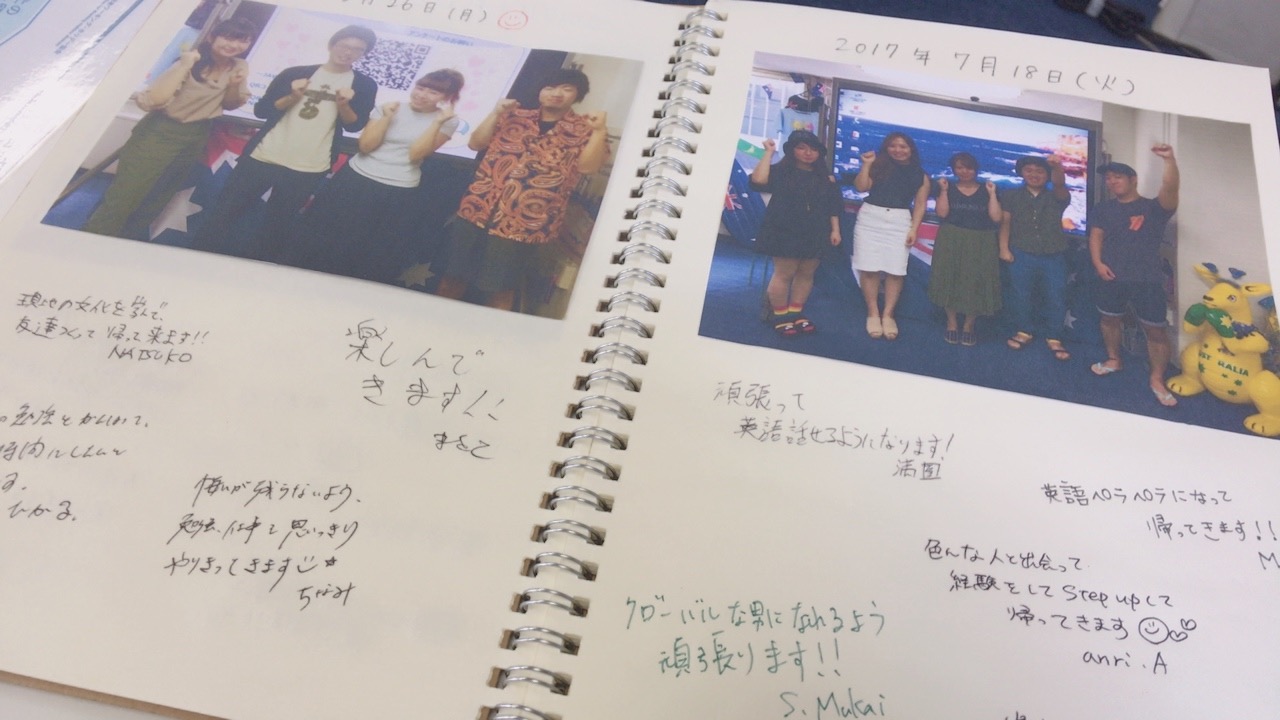 月26日(月)
現地の文化を学んで、
友達つくって帰って来ます!!
NATSUKO
楽しんで
きます!!
まさと
の勉強と
時間に
る。
ひかる。
悔いが残らないよう、
勉強、仕事と思いっきり
やりきってきます
ちなみ
2017年7月18日(火)
頑張って
英語話せるようになります!
満
英語ペラペラになって
帰ってきます!!
M
色んな人と出会って
経験をして Step upして
帰ってきます
anri.A
グローバルな男になれるよう
頑張ります!!
S. Mukai